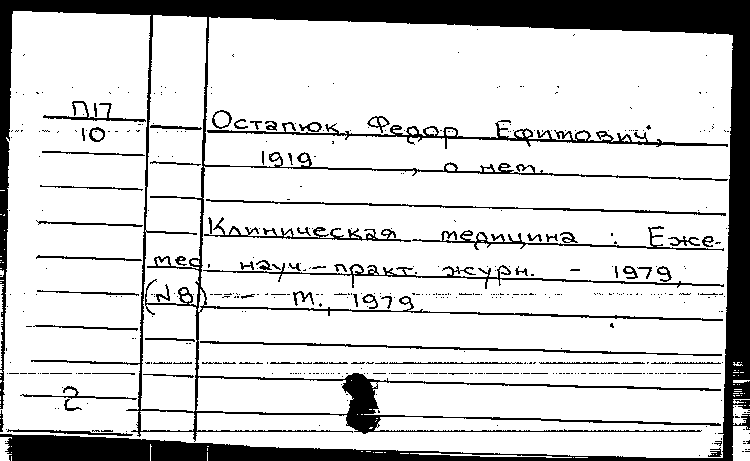 П17
10
Остапюк, Федор Ефимович,
1919 , о нем.
Клиническая медицина : Еже-
мес. науч.-практ. журн. - 1979,
(N8) -- м., 1979.
2